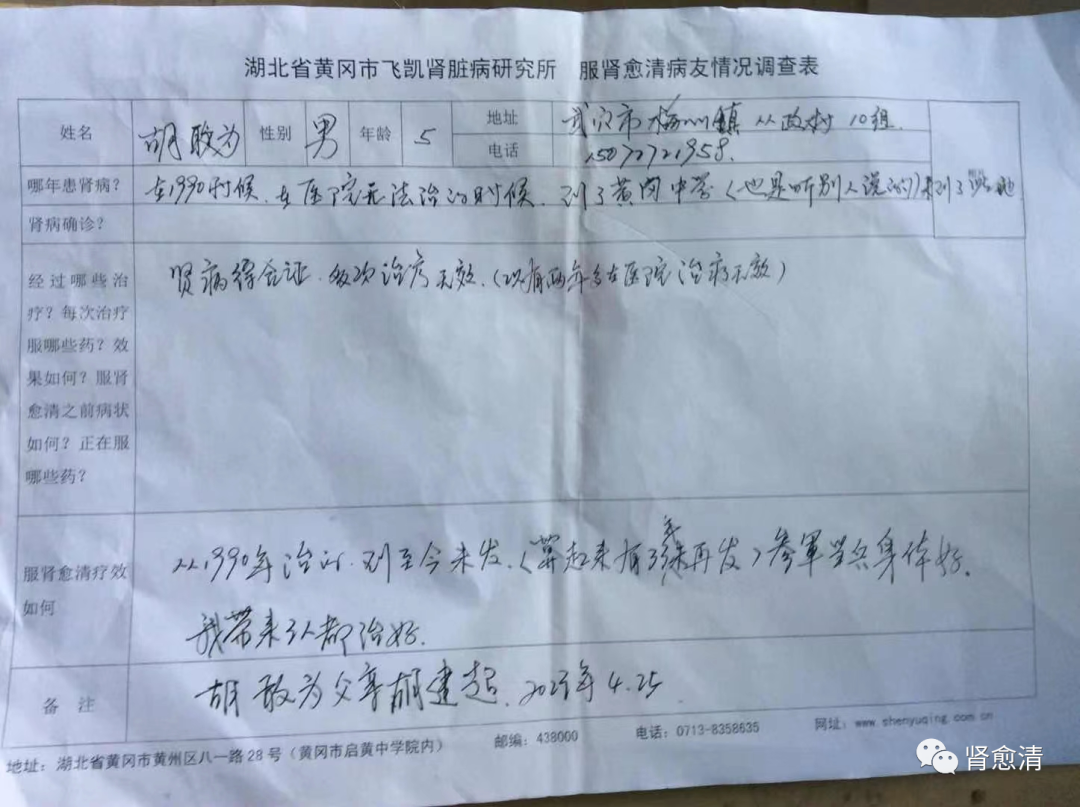 湖北省黄冈市飞凯肾脏病研究所 服肾愈清病友情况调查表
姓名 胡敢为 性别 男 年龄 5 地址 武汉市 镇 从政村 10组.
电话 15072721958.
哪年患肾病? 在1990时候.在医院无法治的时候.到了黄冈中学(也是听别人说的)来到了
肾病确诊?
经过哪些治
疗?每次治疗
服哪些药?效
果如何?服肾
愈清之前病状
如何?正在服
哪些药?
肾病综合证.多次治疗无效.(以有两年多在医院治疗无效)
服肾愈清疗效
如何
从1990年治的.到至今未发.(算起来有 年未再发)参军当兵身体好.
我带来3人都治好.
备 注 胡敢为父亲胡建起. 2023年4.25
地址:湖北省黄冈市黄州区八一路28号(黄冈市启黄中学院内) 邮编:438000 电话:0713-8358635 网址:www.shenyuqing.com.cn
肾愈清